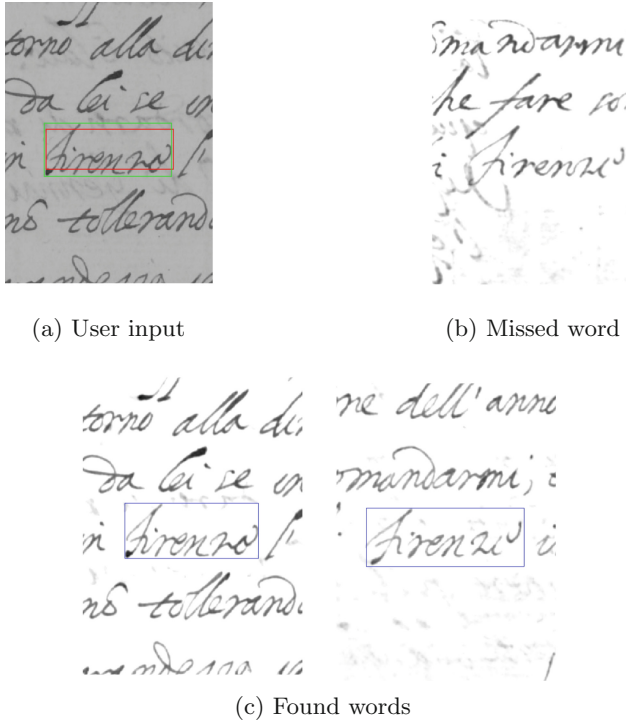 torno alla di
da lei se in
ri firenze
nō tollerand
(a) User input
omandarmi
he fare so
i firenze
(b) Missed word
torno alla di
da lei se in
ri firenze
nō tollerand
ne dell' anno
omandarmi;
firenze i
(c) Found words